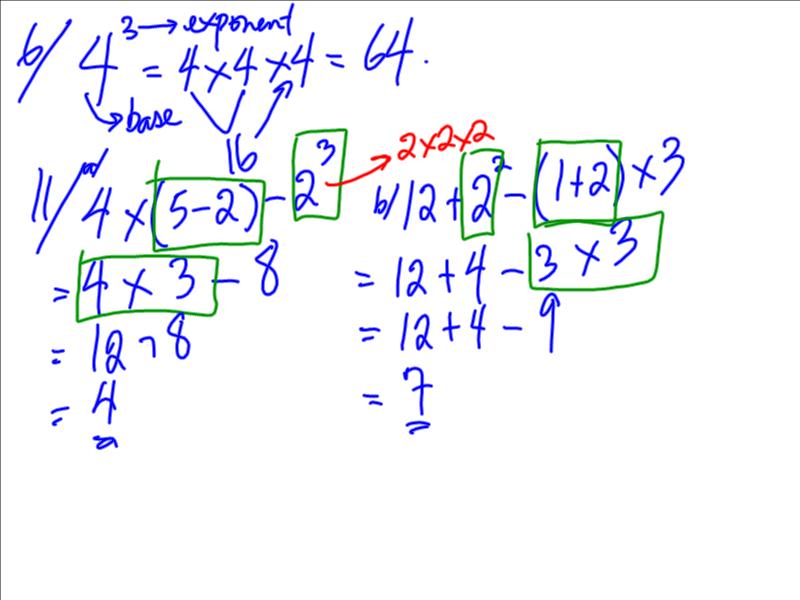 b/ 4³ → exponent
= 4×4×4 = 64.
base
16
2×2×2
11/ a/ 4×(5-2)-2³
= 4×3-8
= 12-8
= 4
b/ 12+2²-(1+2)×3
= 12+4-3×3
= 12+4-9
= 7